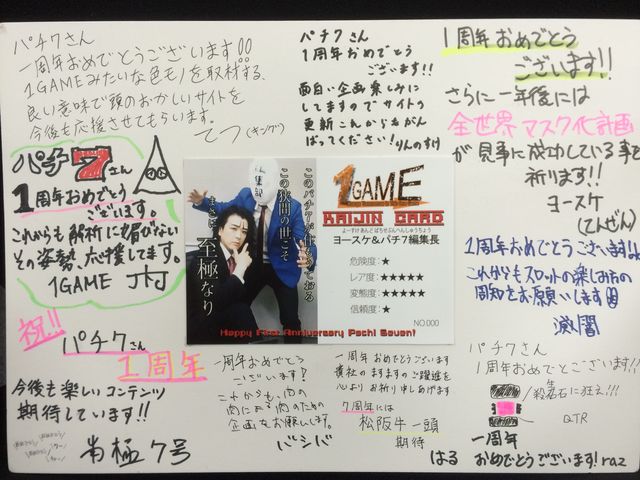 パチ7さん
一周年おめでとうございます!!
1GAMEみたいな色モノを取材する、
良い意味で頭のおかしいサイトを
今後も応援させてもらいます。
てつ(キングソ)
パチ7さん
1周年おめでとう
ございます!!
面白い企画楽しみに
してますのでサイトの
更新これからもがん
ばってください!りんのすけ
1周年おめでとう
ございます!!
さらに一年後には
全世界マスク化計画
が見事に成功している事を
祈ります!!
ヨースケ
(てんぜん)
パチ7さん
1周年おめでとう
ございます。
これからも解析に媚びない
その姿勢、応援してます。
1GAME
編集部
このパチ7が仕切っておる
この狭間の世こそ
まさに 至極なり
1GAME
KAIJIN CARD
よーすけあんどぱちせぶんへんしゅうちょう
ヨースケ&パチ7編集長
危険度:★
レア度:★★★★★
変態度:★★★★★
信頼度:★
NO.000
Happy First Anniversary Pachi Seven!
1周年おめでとうございます!!
これからもスロットの楽しみの
周知をお願いします
滅闇
祝!!
パチ7さん
1周年
今後も楽しいコンテンツ
期待しています!!
肖極7号
一周年おめでとう
ございます!
これからも、肉の
肉による肉のための
企画をお願いします。
バシバ
一周年おめでとうございます
貴社のますますのご躍進を
心よりお祈り申しあげます
7周年には
松阪牛一頭
期待
はる
パチ7さん
1周年おめでとうございます!!
殺生石に狂え!!!
QTR
一周年
おめでとうございます!raz